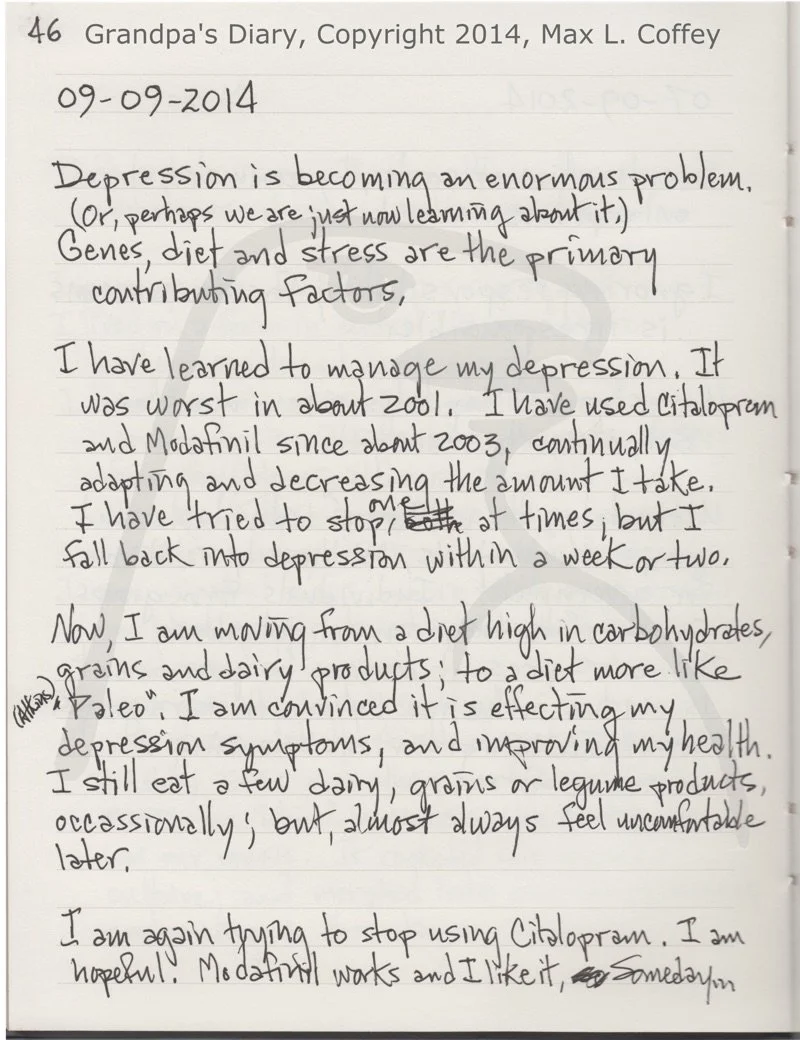 46 Grandpa's Diary, Copyright 2014, Max L. Coffey
09-09-2014
Depression is becoming an enormous problem.
(Or, perhaps we are just now learning about it.)
Genes, diet and stress are the primary
contributing factors.
I have learned to manage my depression. It
was worst in about 2001. I have used Citalopram
and Modafinil since about 2003, continually
adapting and decreasing the amount I take.
I have tried to stop, one at times; but I
fall back into depression within a week or two.
Now, I am moving from a diet high in carbohydrates,
grains and dairy products; to a diet more like
(Atkins) "Paleo". I am convinced it is effecting my
depression symptoms, and improving my health.
I still eat a few dairy, grains or legume products,
occassionally; but, almost always feel uncomfortable
later.
I am again trying to stop using Citalopram. I am
hopeful. Modafinil works and I like it, Someday...